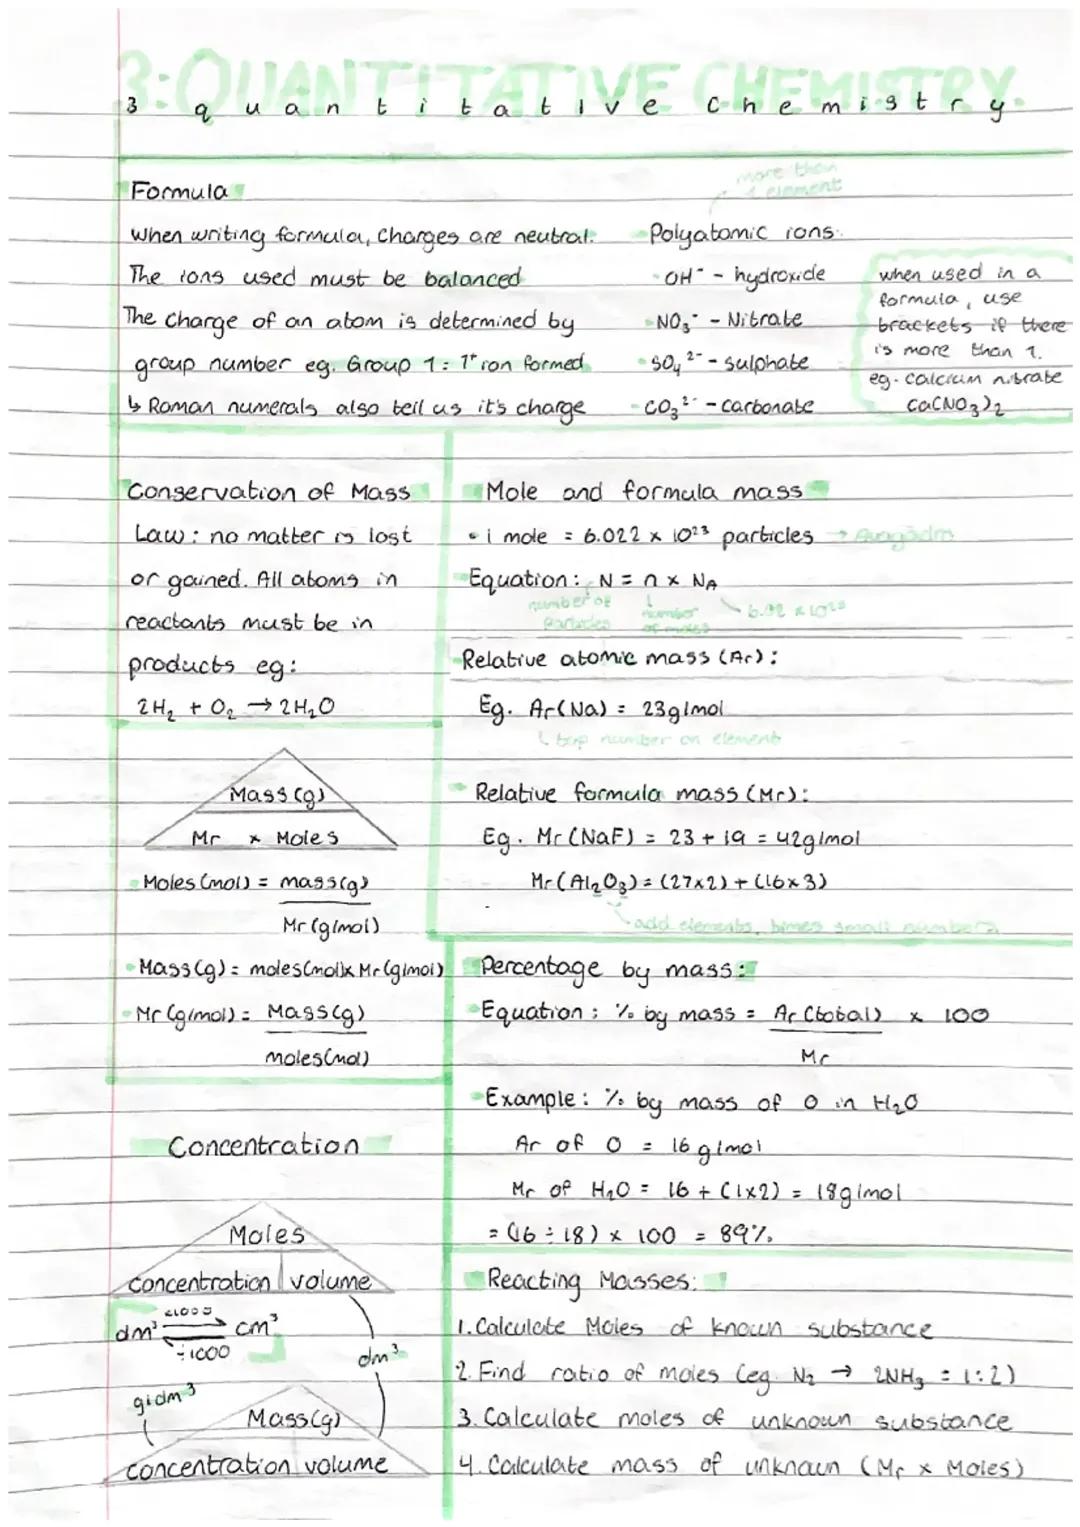 3:QUANTITATIVE CHEMISTRY.
3 quantitative Chemistry.
Formula
when writing formula, Charges are neutral.
The ions used must be balanced
The charge of an atom is determined by
group number eg. Group 1 = 1⁺ ion formed
↳ Roman numerals also tell us it's charge
more than
1 element
Polyatomic ions:
OH⁻ - hydroxide
NO₃⁻ - Nitrate
SO₄²⁻ - sulphate
CO₃²⁻ - carbonate
when used in a
formula, use
brackets if there
is more than 1.
eg. calcium nitrate
Ca(NO₃)₂
Conservation of Mass
Law: no matter is lost
or gained. All atoms in
reactants must be in
products eg:
2H₂ + O₂ → 2H₂O
Mole and formula mass
• 1 mole = 6.022 x 10²³ particles → Avagadro
Equation: N = n x NA
number of particles
number of moles
6.02 x 10²³
Relative atomic mass (Ar):
Eg. Ar(Na) = 23g/mol
↳ top number on element
Relative formula mass (Mr):
Eg. Mr(NaF) = 23 + 19 = 42g/mol
Mr(Al₂O₃) = (27x2) + (16x3)
add elements, times small numbers
Mass(g)
Mr x Moles
Moles(mol) = mass(g)
Mr(g/mol)
Mass(g) = moles(mol)x Mr(g/mol)
Mr(g/mol) = Mass(g)
moles(mol)
Percentage by mass:
Equation: % by mass = Ar (total) x 100
Mr
Example: % by mass of O in H₂O
Ar of O = 16 g/mol
Mr of H₂O = 16 + (1x2) = 18g/mol
= (16 ÷ 18) x 100 = 89%
Concentration
Moles
concentration volume
dm³ x1000 cm³
÷1000
dm³
g/dm³
Mass(g)
concentration volume
Reacting Masses:
1. Calculate Moles of known substance
2. Find ratio of moles (eg. N₂ → 2NH₃ = 1:2)
3. Calculate moles of unknown substance
4. Calculate mass of unknown (Mr x Moles)